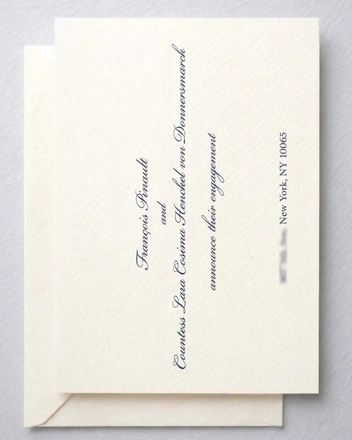 François Pinault
and
Countess Lara Cosima Henckel von Donnersmarch
announce their engagement
New York, NY 10065